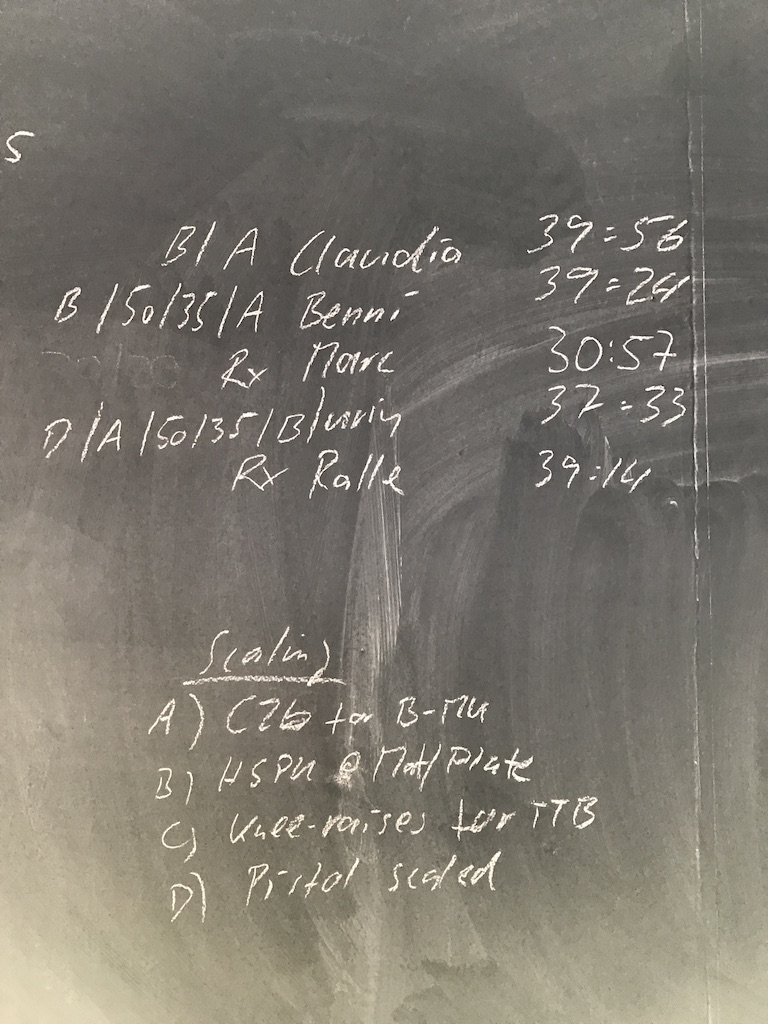 5
B/A Claudia 39:56
B/50/35/A Benni 39:24
Rx Marc 30:57
D/A/50/35/B/ 37:33
Rx Ralle 39:14
Scaling
A) C2b for B-MU
B) HSPU @ Mat/Plate
C) Knee-raises for TTB
D) Pistol scaled